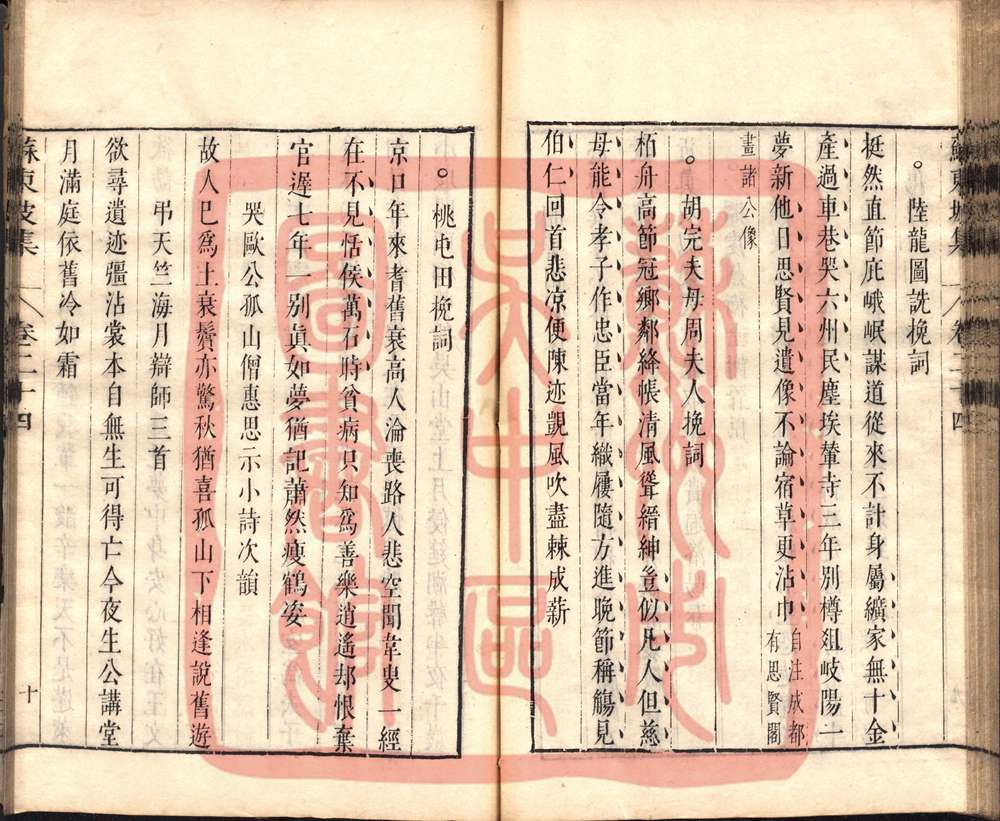 蘇東坡集 卷二十四
陸龍圖詵挽詞
挺然直節庇峨岷謀道從來不計身屬纊家無十金
產過車巷哭六州民塵埃輦寺三年別樽俎岐陽一
夢新他日思賢見遺像不論宿草更沾巾自注成都有思賢閣
畫諸公像
胡完夫母周夫人挽詞
栢舟高節冠鄉鄰絳帳清風聳縉紳豈似凡人但慈
母能令孝子作忠臣當年織屨隨方進晚節稱觴見
伯仁回首悲凉便陳迹覬風吹盡棘成薪
桃屯田挽詞
京口年來耆舊衰高人淪喪路人悲空聞韋叟一經
在不見恬侯萬石時貧病只知爲善樂逍遙却恨棄
官遲七年一別眞如夢猶記蕭然瘦鶴姿
哭歐公孤山僧惠思示小詩次韻
故人已爲土衰鬢亦驚秋猶喜孤山下相逢說舊遊
弔天竺海月辯師三首
欲尋遺迹彊沾裳本自無生可得亡今夜生公講堂
月滿庭依舊冷如霜
蘇東坡集 卷二十四 十
蘇州市
吳中區
圖書館